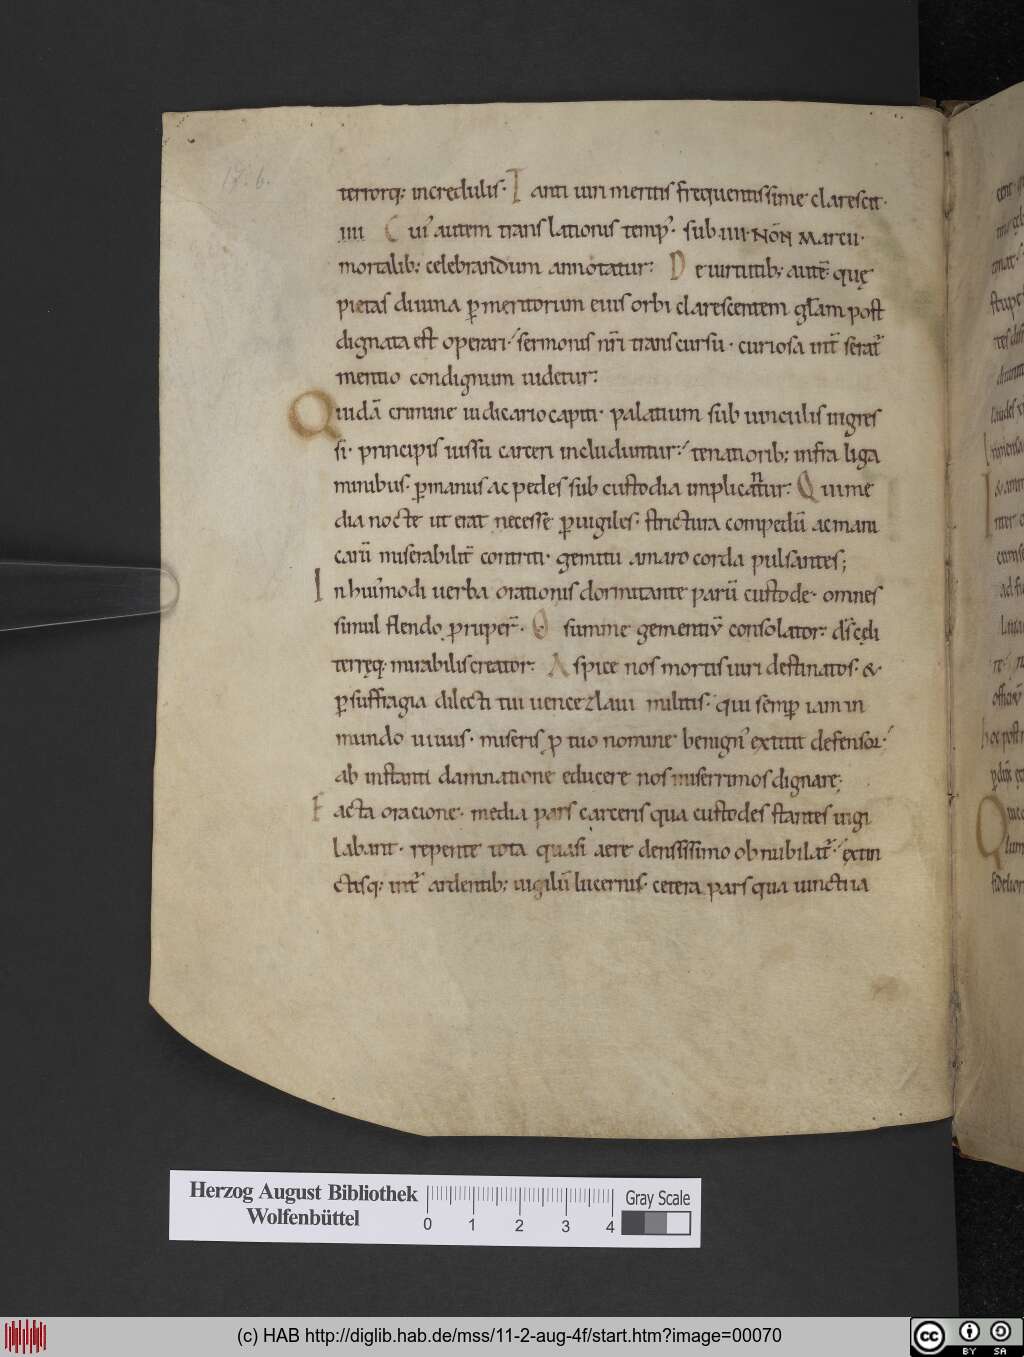 17. b.
terrorq; incredulis. Tanti uiri meritis frequentissime clarescit.
IIII Cui' autem translationis temp' sub IIII. NON̄ MARCII.
mortalib; celebrandum annotatur: De uirtutib; autē quę
pietas diuina p̲ meritorum eius orbi clarescentem gl̄am post
dignata est operari. sermonis nr̄i transcursu. curiosa int̄ serat̄
mentio condignum uidetur:
Quidā crimine iudicario capti. palatium sub uinculis ingres
si. principis iussu carceri includuntur: tenatiorib; infra liga
minibus. p̲ manus ac pedes sub custodia implicantur. Qui me
dia nocte ut erat necesse p̲uigiles. strictura compedū ac mani
carū miserabilit̄ contriti. gemitu amaro corda pulsantes;
In hui'modi uerba orationis dormitante parū custode. omnes
simul flendo p̲rūper̄. O summe gementiū consolator. d̄s cęli
terręq. mirabilis creator. Aspice nos mortis uiri destinatos. &
p̲ suffragia dilecti tui uencezlaui militis. qui semp̲ iam in
mundo uiuus. miseris p̲ tuo nomine benign' extitit defensor.
ab instanti damnatione educere nos miserrimos dignare;
Facta oracione. media pars carceris qua custodes stantes uigi
labant. repente tota quasi aere densissimo obnubilat̄. extin
ctisq; int̄ ardentib; uigiliū lucernis. cetera pars qua uincti ia
Herzog August Bibliothek
Wolfenbüttel
0 1 2 3 4
Gray Scale
(c) HAB http://diglib.hab.de/mss/11-2-aug-4f/start.htm?image=00070
cc BY SA